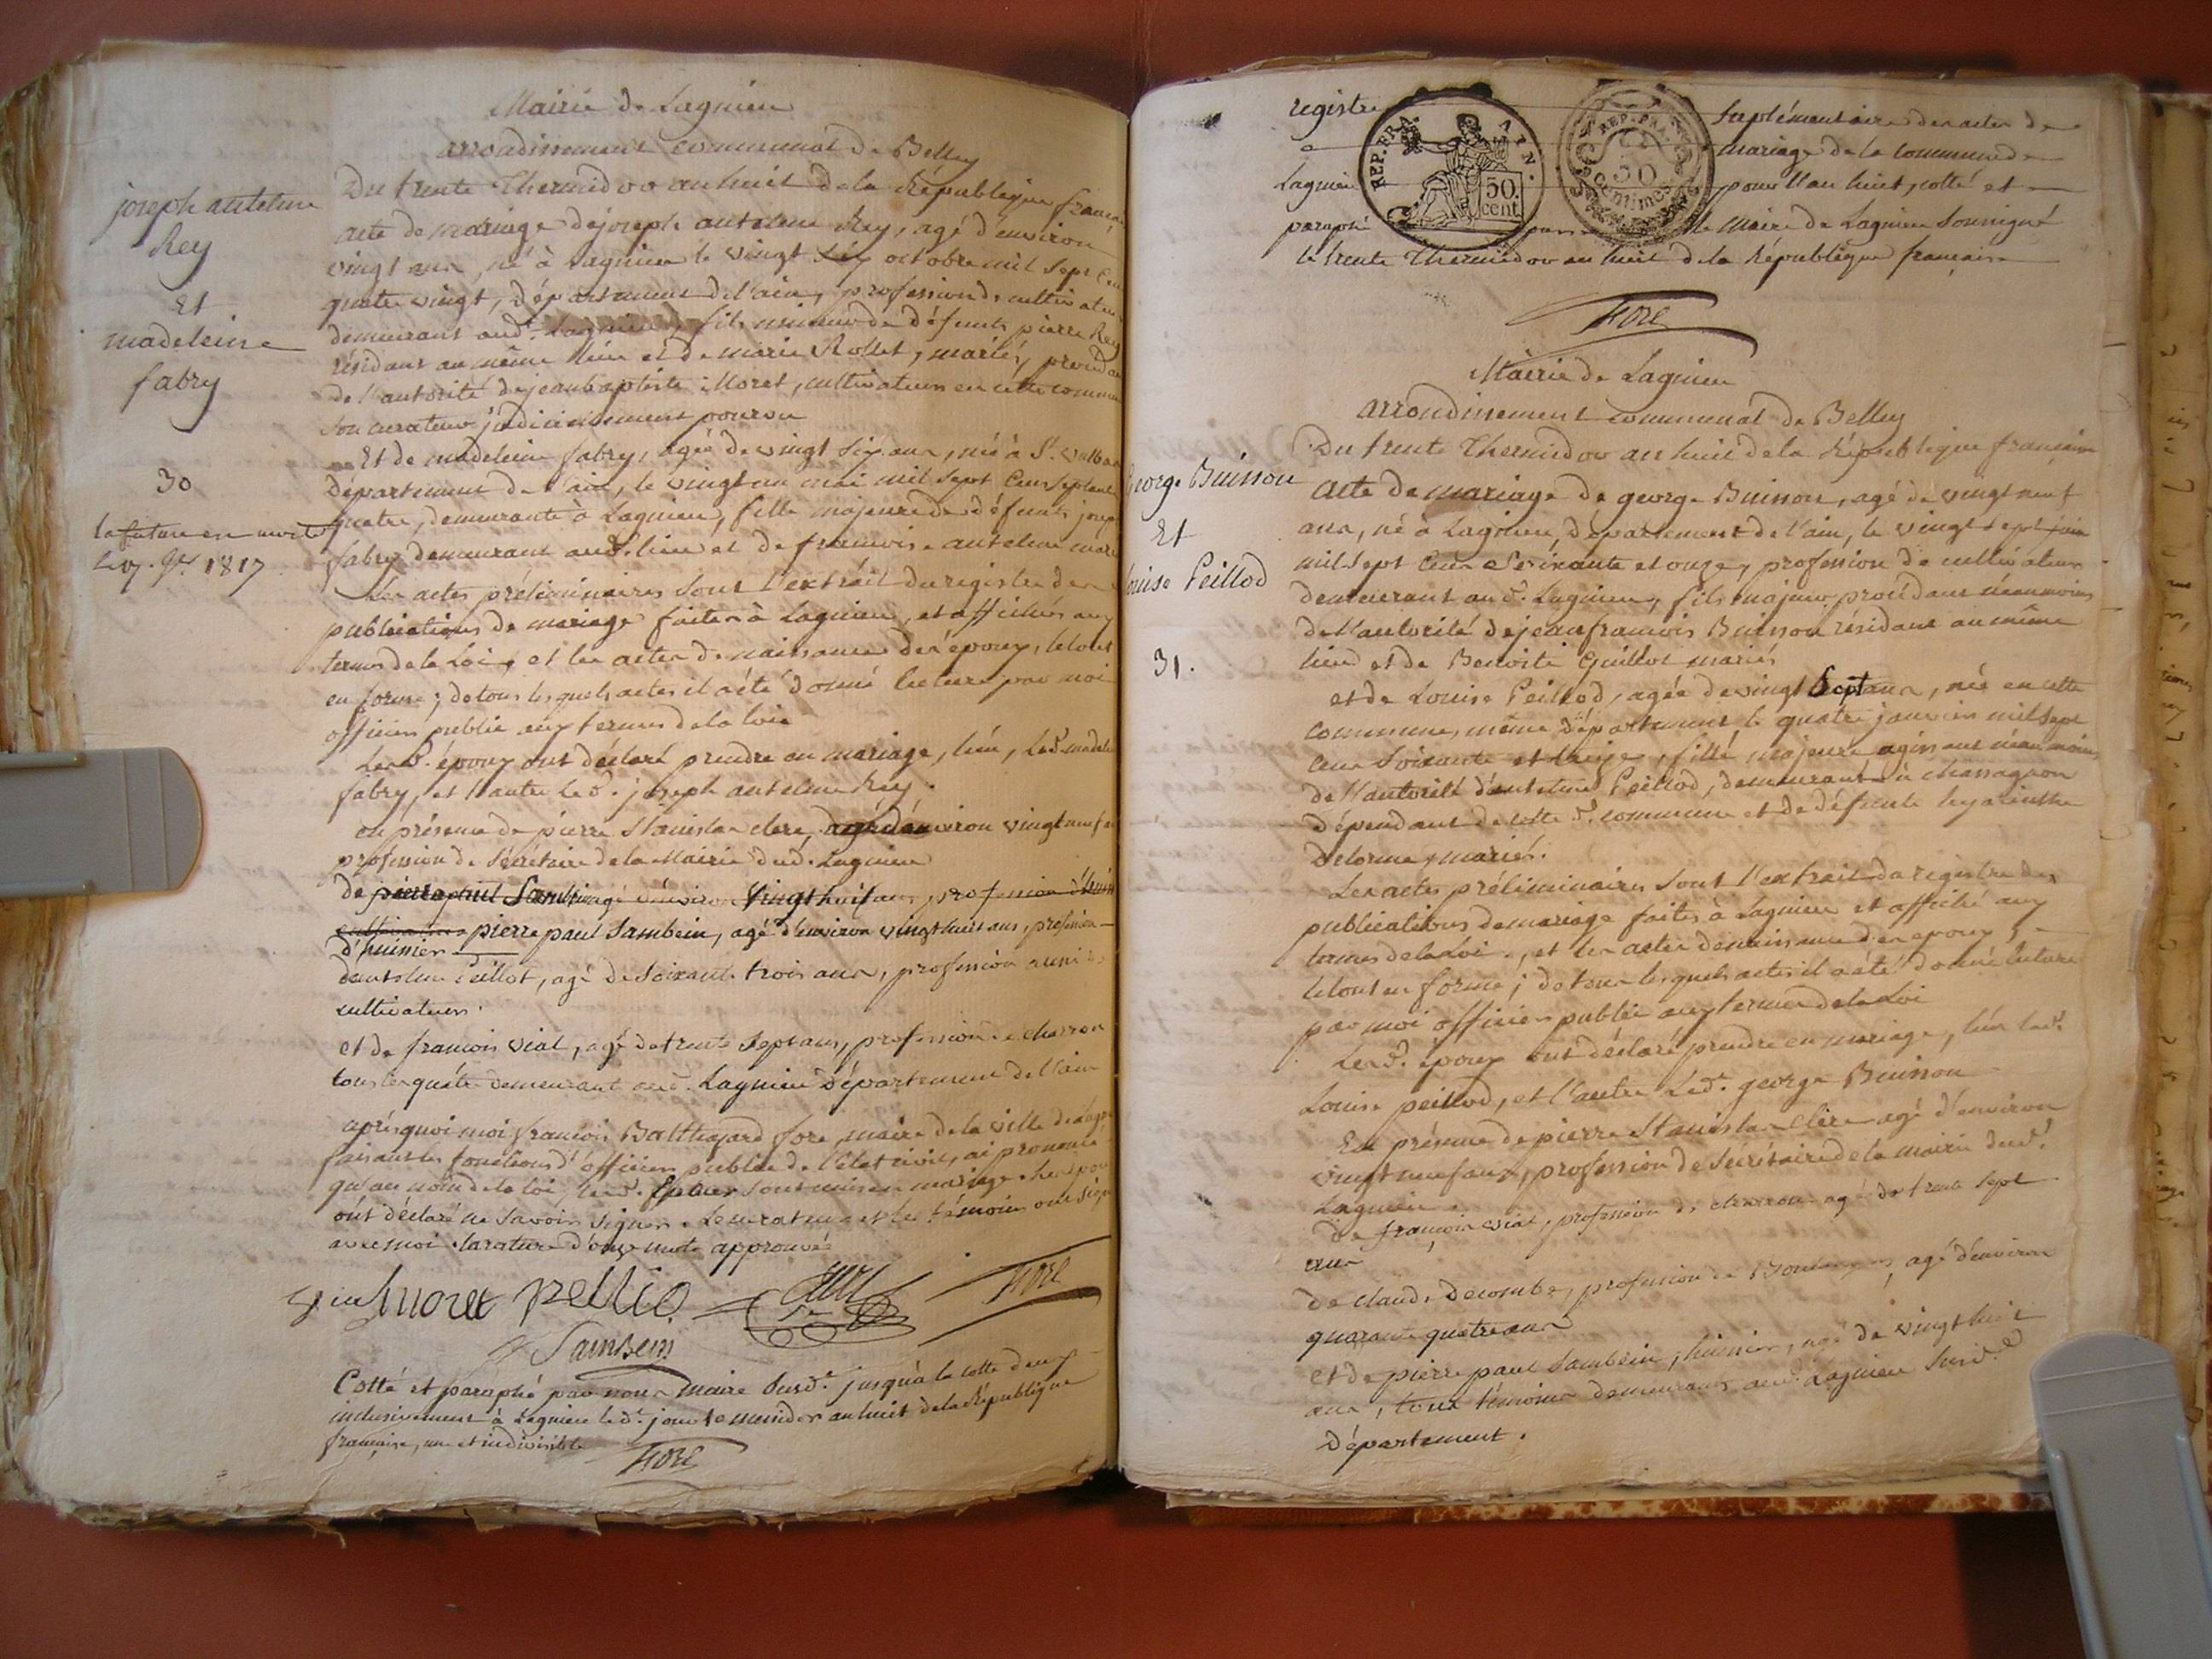 Mairie de Lagnieu
arrondissement communal de Belley
joseph antelme
Rey
Et
madeleine
fabry
30
la future est morte
1817
Du trente Thermidor an huit de la République
acte de mariage de joseph antelme Rey, agé d'environ
vingt ans, né à Lagnieu le vingt six octobre mil sept
quatre vingt, département de l'ain, profession de
demeurant aud. Lagnieu, fils mineur de défunts pierre Rey
résidant au même lieu et de marie Rollet, mariés,
de l'autorité de jean baptiste Moret, cultivateur en cette
son curateur judiciairement pourvu
Et de madeleine fabry, agée de vingt six ans, née à St.
département de l'ain, le vingt un mai mil sept cens
quatre, demeurante à Lagnieu, fille majeure de défunts
fabry demeurant aud. lieu et de francoise antelme
Les actes préliminaires sont l'extrait du registre des
publications de mariage faites à Lagnieu, et affichés aux
termes de la Loi, et les actes de naissance des époux, le tout
en forme; de tous lesquels actes il a été donné lecture par moi
officier public aux termes de la loi
Lesd. époux ont déclaré prendre en mariage, l'un, Lad.
fabry, et l'autre Led. joseph antelme Rey.
en présence de pierre Stanislas clerc, agé d'environ vingt neuf
profession de Sécrétaire de la Mairie dud. Lagnieu
de pierre paul Sambein agé d'environ vingt huit ans, profession
pierre paul Sambein, agé d'environ vingt huit ans, profession
d'huissier
d'antelme Peillot, agé de soixante trois ans, profession aussi de
cultivateur.
et de francois vial, agé de trente sept ans, profession de charron
tous les quatre demeurant aud. Lagnieu Département de l'ain
après quoi moi francois Balthazard fore maire de la ville de
faisant les fonctions d'officier public de l'état civil, ai prononcé
qu'au nom de la loi, lesd. Epoux sont unis en mariage. Les
ont déclaré ne savoir signer. Le curateur et les témoins ont
avec moi. la rature d'onze mots approuvée
moret pellio. fore
Sambein
Cotté et paraphé par nous maire susd. jusqu'à la cotte deux
inclusivement à Lagnieu led. jour thermidor an huit de la République
française, une et indivisible
fore
registre Suplémentaire des actes de
mariage de la commune de
Lagnieu pour l'an huit, cotté et
paraphé par le Maire de Lagnieu Soussigné
le trente Thermidor an huit de la République française
REP. FRA.
ATN.
50.
cent.
REP. FRA
50
centimes
fore
Mairie de Lagnieu
arrondissement communal de Belley
george Buisson
Et
Louise Peillod
31.
Du trente Thermidor an huit de la République française
acte de mariage de george Buisson, agé de vingt neuf
ans, né à Lagnieu, département de l'ain, le vingt sept juin
mil sept cens soixante et onze, profession de cultivateur
demeurant aud. Lagnieu, fils majeur procédant néanmoins
de l'autorité de jean francois Buisson résidant au même
lieu et de Benoite Guillot mariés
et de Louise Peillod, agée de vingt Sept ans, née en cette
commune, même département, le quatre janvier mil sept
cens soixante et treize, fille majeure agissant néanmoins
de l'autorité d'antelme Peillod, demeurant à chassagnon
dépendant de cette d. commune et de défunte hyacinthe
Delorme, mariés.
Les actes préliminaires sont l'extrait du registre des
publications de mariage faites à Lagnieu et affiché aux
termes de la Loi, et les actes de naissance des epoux,
le tout en forme; de tous lesquels actes il a été donné lecture
par moi officier public aux termes de la Loi
Lesd. époux ont déclaré prendre en mariage, l'un lad.
Louise peillod, et l'autre Led. george Buisson
En présence de pierre Stanislas clerc agé d'environ
vingt neuf ans, profession de Sécrétaire de la mairie dud.
Lagnieu
De francois vial, profession de charron agé de trente sept
ans
De claude decombe, profession de agé d'environ
quarante quatre ans
et de pierre paul Sambein, huissier, agé de vingt huit
ans, tous témoins demeurans aud. Lagnieu susd.
Département.